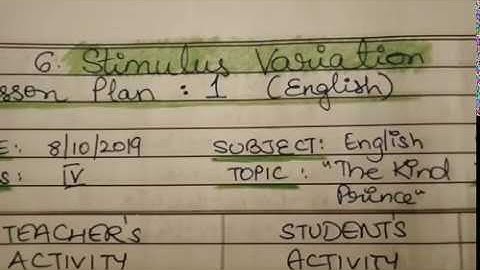 6. Stimulus Variation
sson Plan : 1 (English)
E: 8/10/2019 SUBJECT: English
S: IV TOPIC : "The Kind
Prince"
TEACHER'S STUDENT'S
ACTIVITY ACTIVITY